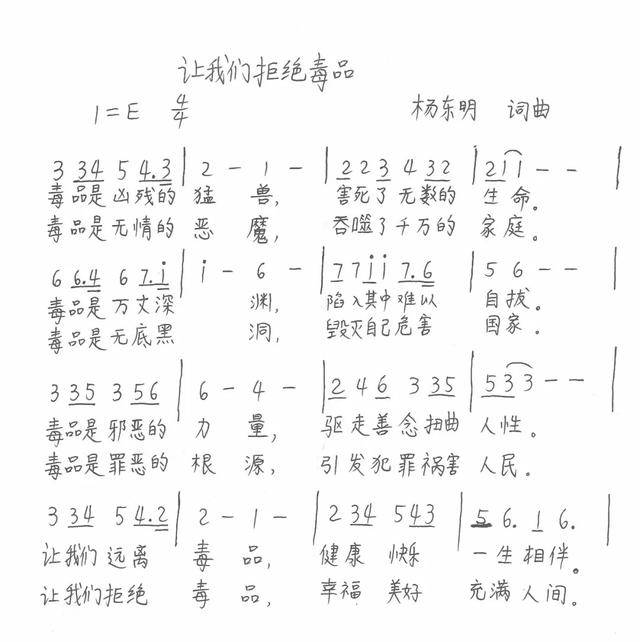 让我们拒绝毒品
1=E 4/4 杨东明 词曲
3 34 5 4.3 | 2 - 1 - | 2 2 3 4 3 2 | 2 1 1 - - |
毒品是凶残的 猛 兽, 害死了无数的 生命。
毒品是无情的 恶 魔, 吞噬了千万的 家庭。
6 6.4 6 7.i | i - 6 - | 7 7 i i 7.6 | 5 6 - - |
毒品是万丈深 渊, 陷入其中难以 自拔。
毒品是无底黑 洞, 毁灭自己危害 国家.
3 35 3 56 | 6 - 4 - | 2 4 6 3 35 | 5 3 3 - - |
毒品是邪恶的 力 量, 驱走善念扭曲 人性。
毒品是罪恶的 根 源, 引发犯罪祸害 人民。
3 34 5 4.2 | 2 - 1 - | 2 34 5 43 | 5 6. 1 6. |
让我们远离 毒 品, 健康 快乐 一生相伴。
让我们拒绝 毒 品, 幸福 美好 充满人间。